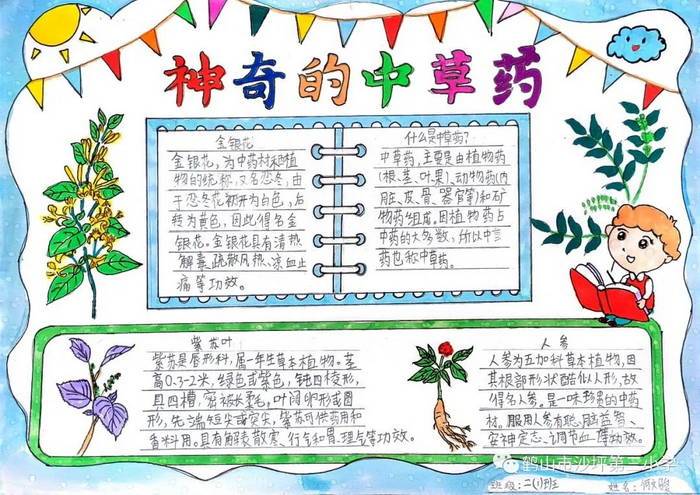 神奇的中草药
金银花
金银花，为中药材和植
物的统称，又名忍冬，由
于忍冬花初开为白色，后
转为黄色，因此得名金
银花。金银花具有清热
解毒，疏散风热，凉血止
痛等功效。
什么是中草药？
中草药，主要是由植物药
（根、茎、叶、果）、动物药（内
脏、皮、骨、器官等）和矿
物药组成。因植物药占
中药的大多数，所以中
药也称中草药。
紫苏叶
紫苏是唇形科，属一年生草本植物。茎
高0.3-2米，绿色或紫色，钝四棱形，
具四槽，密被长柔毛，叶阔卵形或圆
形，先端短尖或突尖，紫苏可供药用和
香料用。具有解表散寒、行气和胃、理气等功效。
人参
人参为五加科草本植物，因
其根部形状酷似人形，故
得名人参。是一味珍贵的中药
材。服用人参有聪脑益智、
安神定志、调节血压功效。
鹤山市沙坪第二小学
班级：二(1)班
姓名：